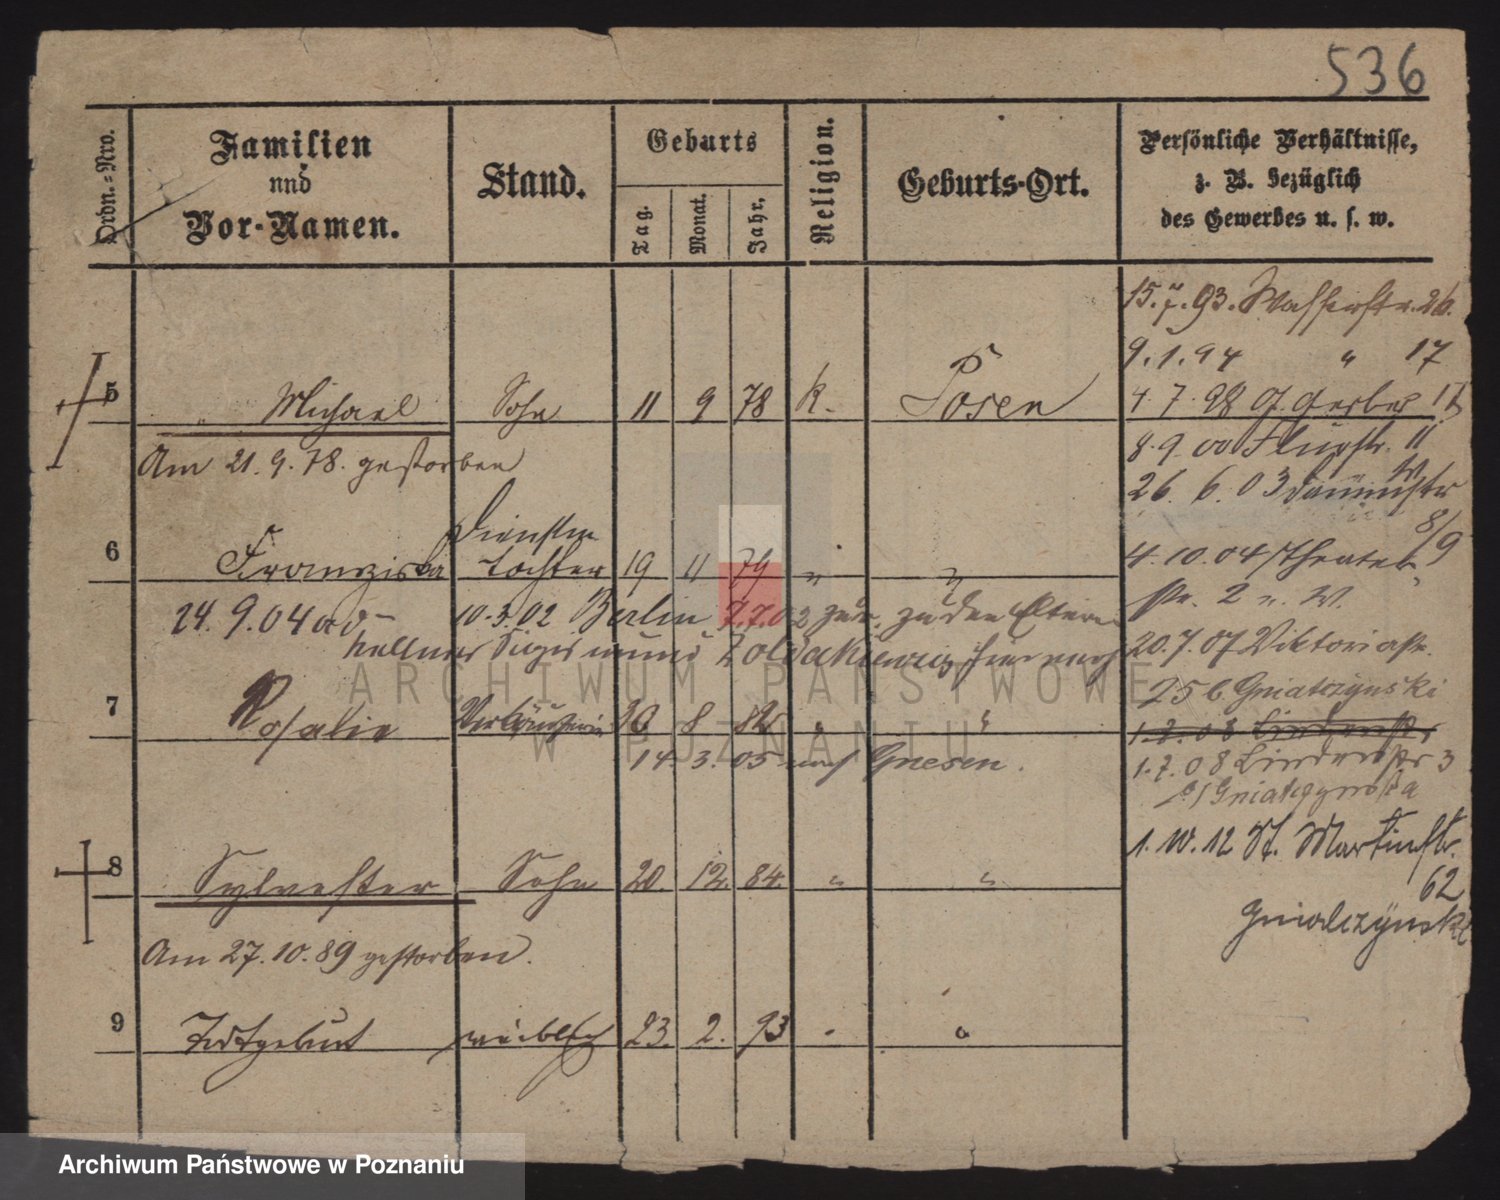 536
Ordn.-Nro.
Familien
und
Vor-Namen.
Stand.
Geburts
Tag.
Monat.
Jahr.
Religion.
Geburts-Ort.
Persönliche Verhältnisse,
z. B. bezüglich
des Gewerbes u. s. w.
15.7.93. Wasserstr. 26.
9.1.94 " 17
5 " Michael Sohn 11 9 78 k. Posen
4.7.98 Gr. Gerber
Am 21.9.78. gestorben
8.9.00 Flurstr. 11
26.6.03
8/9
6 Franziska Tochter 19 11 79 " "
4.10.04 Theater
str. 2 u. W.
24.9.04 10.3.02 Berlin 7.7.02 zur. zu den Eltern
Kellner Sigismund Zoldakiewicz hier
20.7.07 Viktoriastr.
25 b Gniatczynski
7 Rosalie Verkäuferin 30 8 82 " "
1.7.08 Lindenstr.
14.3.05 nach Gnesen.
1.7.08 Lindenstr 3
b/Gniatczynska
8 Sylvester Sohn 20. 12. 84. " "
1.10.12 St. Martinstr.
62
Gniatczynski
Am 27.10.89 gestorben.
9 Todtgeburt weiblich 23. 2. 93 " "
ARCHIWUM PAŃSTWOWE
W POZNANIU
Archiwum Państwowe w Poznaniu